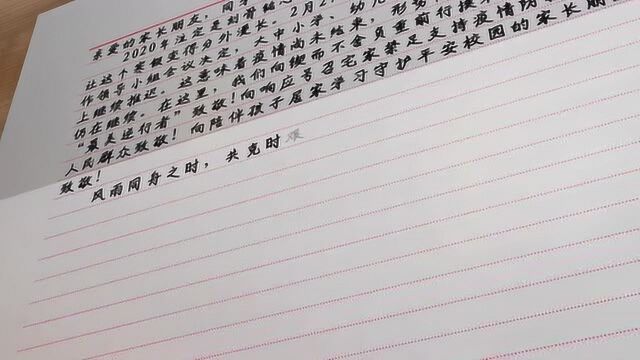 亲爱的家长朋友，同学
2020年注定是刻骨铭心
让这个寒假变得分外漫长。2月2
作领导小组会议决定，大中小学、幼儿
上继续推迟。这意味着疫情尚未结束，形势
仍在继续。在这里，我们向毅而不舍负重前行
"最美逆行者"致敬！向响应号召宅家禁足支持疫情防
人民群众致敬！向陪伴孩子居家学习守护平安校园的家长朋
致敬！
风雨同舟之时，共克时艰